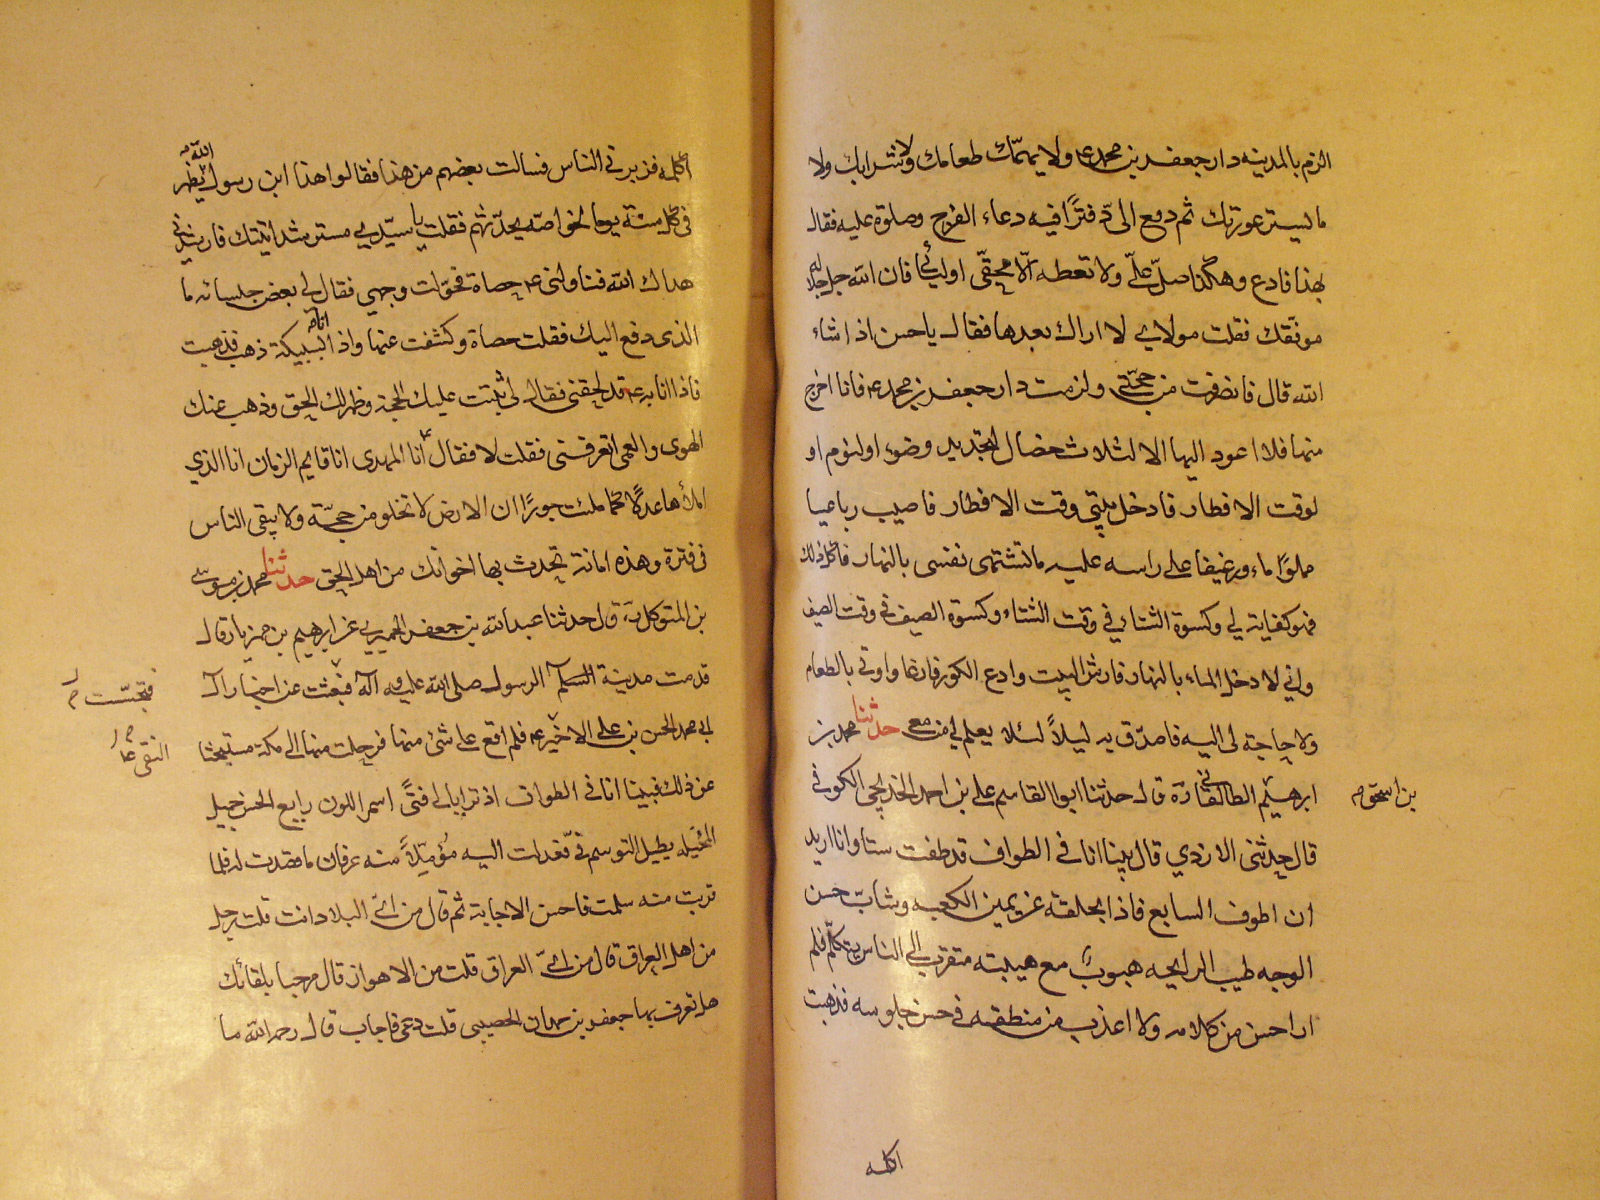 الزم بالمدينه دار جعفر بن محمد ع ولا يهمّنّك طعامك ولا شرابك ولا
ما يستر عورتك ثم دفع الىّ دفترًا فيه دعاء الفرج وصلوة عليه فقال
بهذا فادع وهكذا صلّ علىّ ولا تعطه الّا محقّى اوليائى فان الله جل جلاله
موفّقك فقلت مولاى لا اراك بعدها فقال يا حسن اذا شاء
الله قال فانصرفت من حجّتى ولزمت دار جعفر بن محمد ع فانا اخرج
منها فلا اعود اليها الا لثلاث خصال لتجديد وضوء او لنوم او
لوقت الافطار فادخل بيتى وقت الافطار فاصيب رباعيا
مملوًا ماء ورغيفا على راسه عليه ما تشتهى نفسى بالنهار فآكل ذلك
فهو كفاية لى وكسوة الشتاء فى وقت الشتاء وكسوة الصيف فى وقت الصيف
وانى لا دخل الماء بالنهار فارش البيت وادع الكوز فارغا واوتى بالطعام
ولا حاجة لى اليه فاصدّق به ليلاً لئلا يعلم بى من معى حدثنا محمد بن
ابرهيم الطالقانى ره قال حدثنا ابو القاسم على بن احمد الخديجى الكوفى
بن اسحق م
قال حدثنى الازدى قال بينا انا فى الطواف قد طفت ستا وانا اريد
ان اطوف السابع فاذا بحلقة عن يمين الكعبه وشابّ حسن
الوجه طيب الرايحه هيوب مع هيبته متقرب الى الناس يتكلّم فلم
ار احسن من كلامه ولا اعذب من منطقه فى حسن جلوسه فذهبت
اكلمه
اكلمه فزبرنى الناس فسالت بعضهم من هذا فقالوا هذا ابن رسول الله يظهر
فى كل سنة يوما لخواصّه يحدّثهم فقلت يا سيّدى مسترشد اتيتك فارشدنى
هداك الله فناولنى ع حصاة فحوّلت وجهى فقال لى بعض جلسائه ما
الذى دفع اليك فقلت حصاة وكشفت عنها واذا انا بسبيكة ذهب فذهبت
فاذا انا به ع قد لحقنى فقال لى ثبتت عليك الحجة وظهر لك الحق وذهب عنك
الهوى والعمى اتعرفنى فقلت لا فقال ع انا المهدى انا قايم الزمان انا الذى
املأها عدلًا كما ملئت جورًا ان الارض لا تخلو من حجّة ولا يبقى الناس
فى فترة وهذه امانة تحدث بها اخوانك من اهل الحق حدثنا محمد بن موسى
بن المتوكل ره قال حدثنا عبدالله بن جعفر الحميرى عن ابرهيم بن مهزيار قال
قدمت مدينة الرسول صلى الله عليه وآله فبعثت عن اخبار آل
فتجسّست م
ابى محمد الحسن بن على الاخير ع فلم اقع على شئ منها فرحلت منها الى مكة مستبحثا
النقى ع
عن ذلك فبينا انا فى الطواف اذ تراءا لى فتًى اسمر اللون رايع الحسن جميل
المخيله يطيل التوسم فىّ فعدلت اليه مؤمّلًا منه عرفان ما قصدت له فلما
قربت منه سلمت فاحسن الاجابة ثم قال من اىّ البلاد انت قلت رجل
من اهل العراق قال من اىّ العراق قلت من الاهواز قال مرحبا بلقائك
هل تعرف بها جعفر بن حمدان الحصيبى قلت دعى فاجاب قال رحمه الله ما